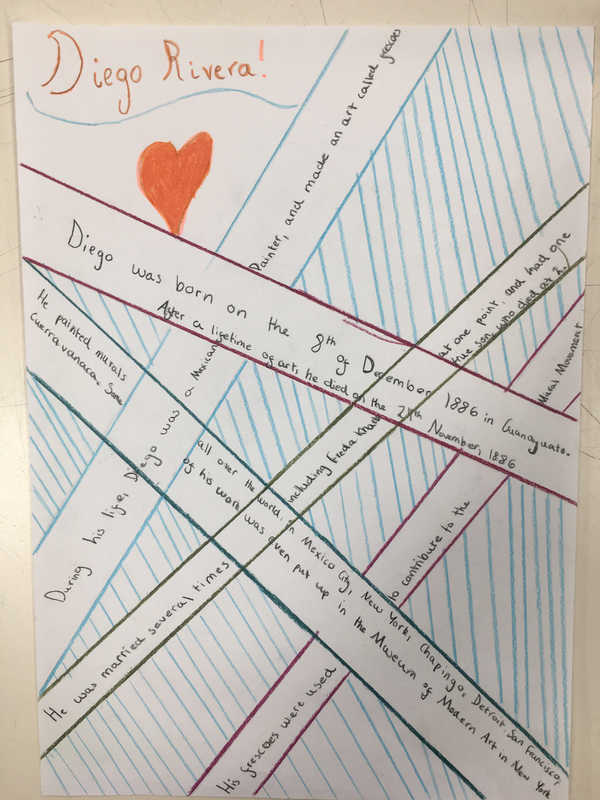 Diego Rivera!
Diego was born on the 8th of December 1886 in Guanajuato.
After a lifetime of art, he died on the 24th November, 1886
During his life, Diego was a Mexican Painter, and made an art called frescoes
He painted murals all over the world, in Mexico City, New York, Chapingo, Detroit, San Francisco,
Cuerravanaca. Some of his work was even put up in the Museum of Modern Art in New York
He was married several times including Freda at one point, and had one
true son, who died at
His frescoes were used to contribute to the Mural Movement